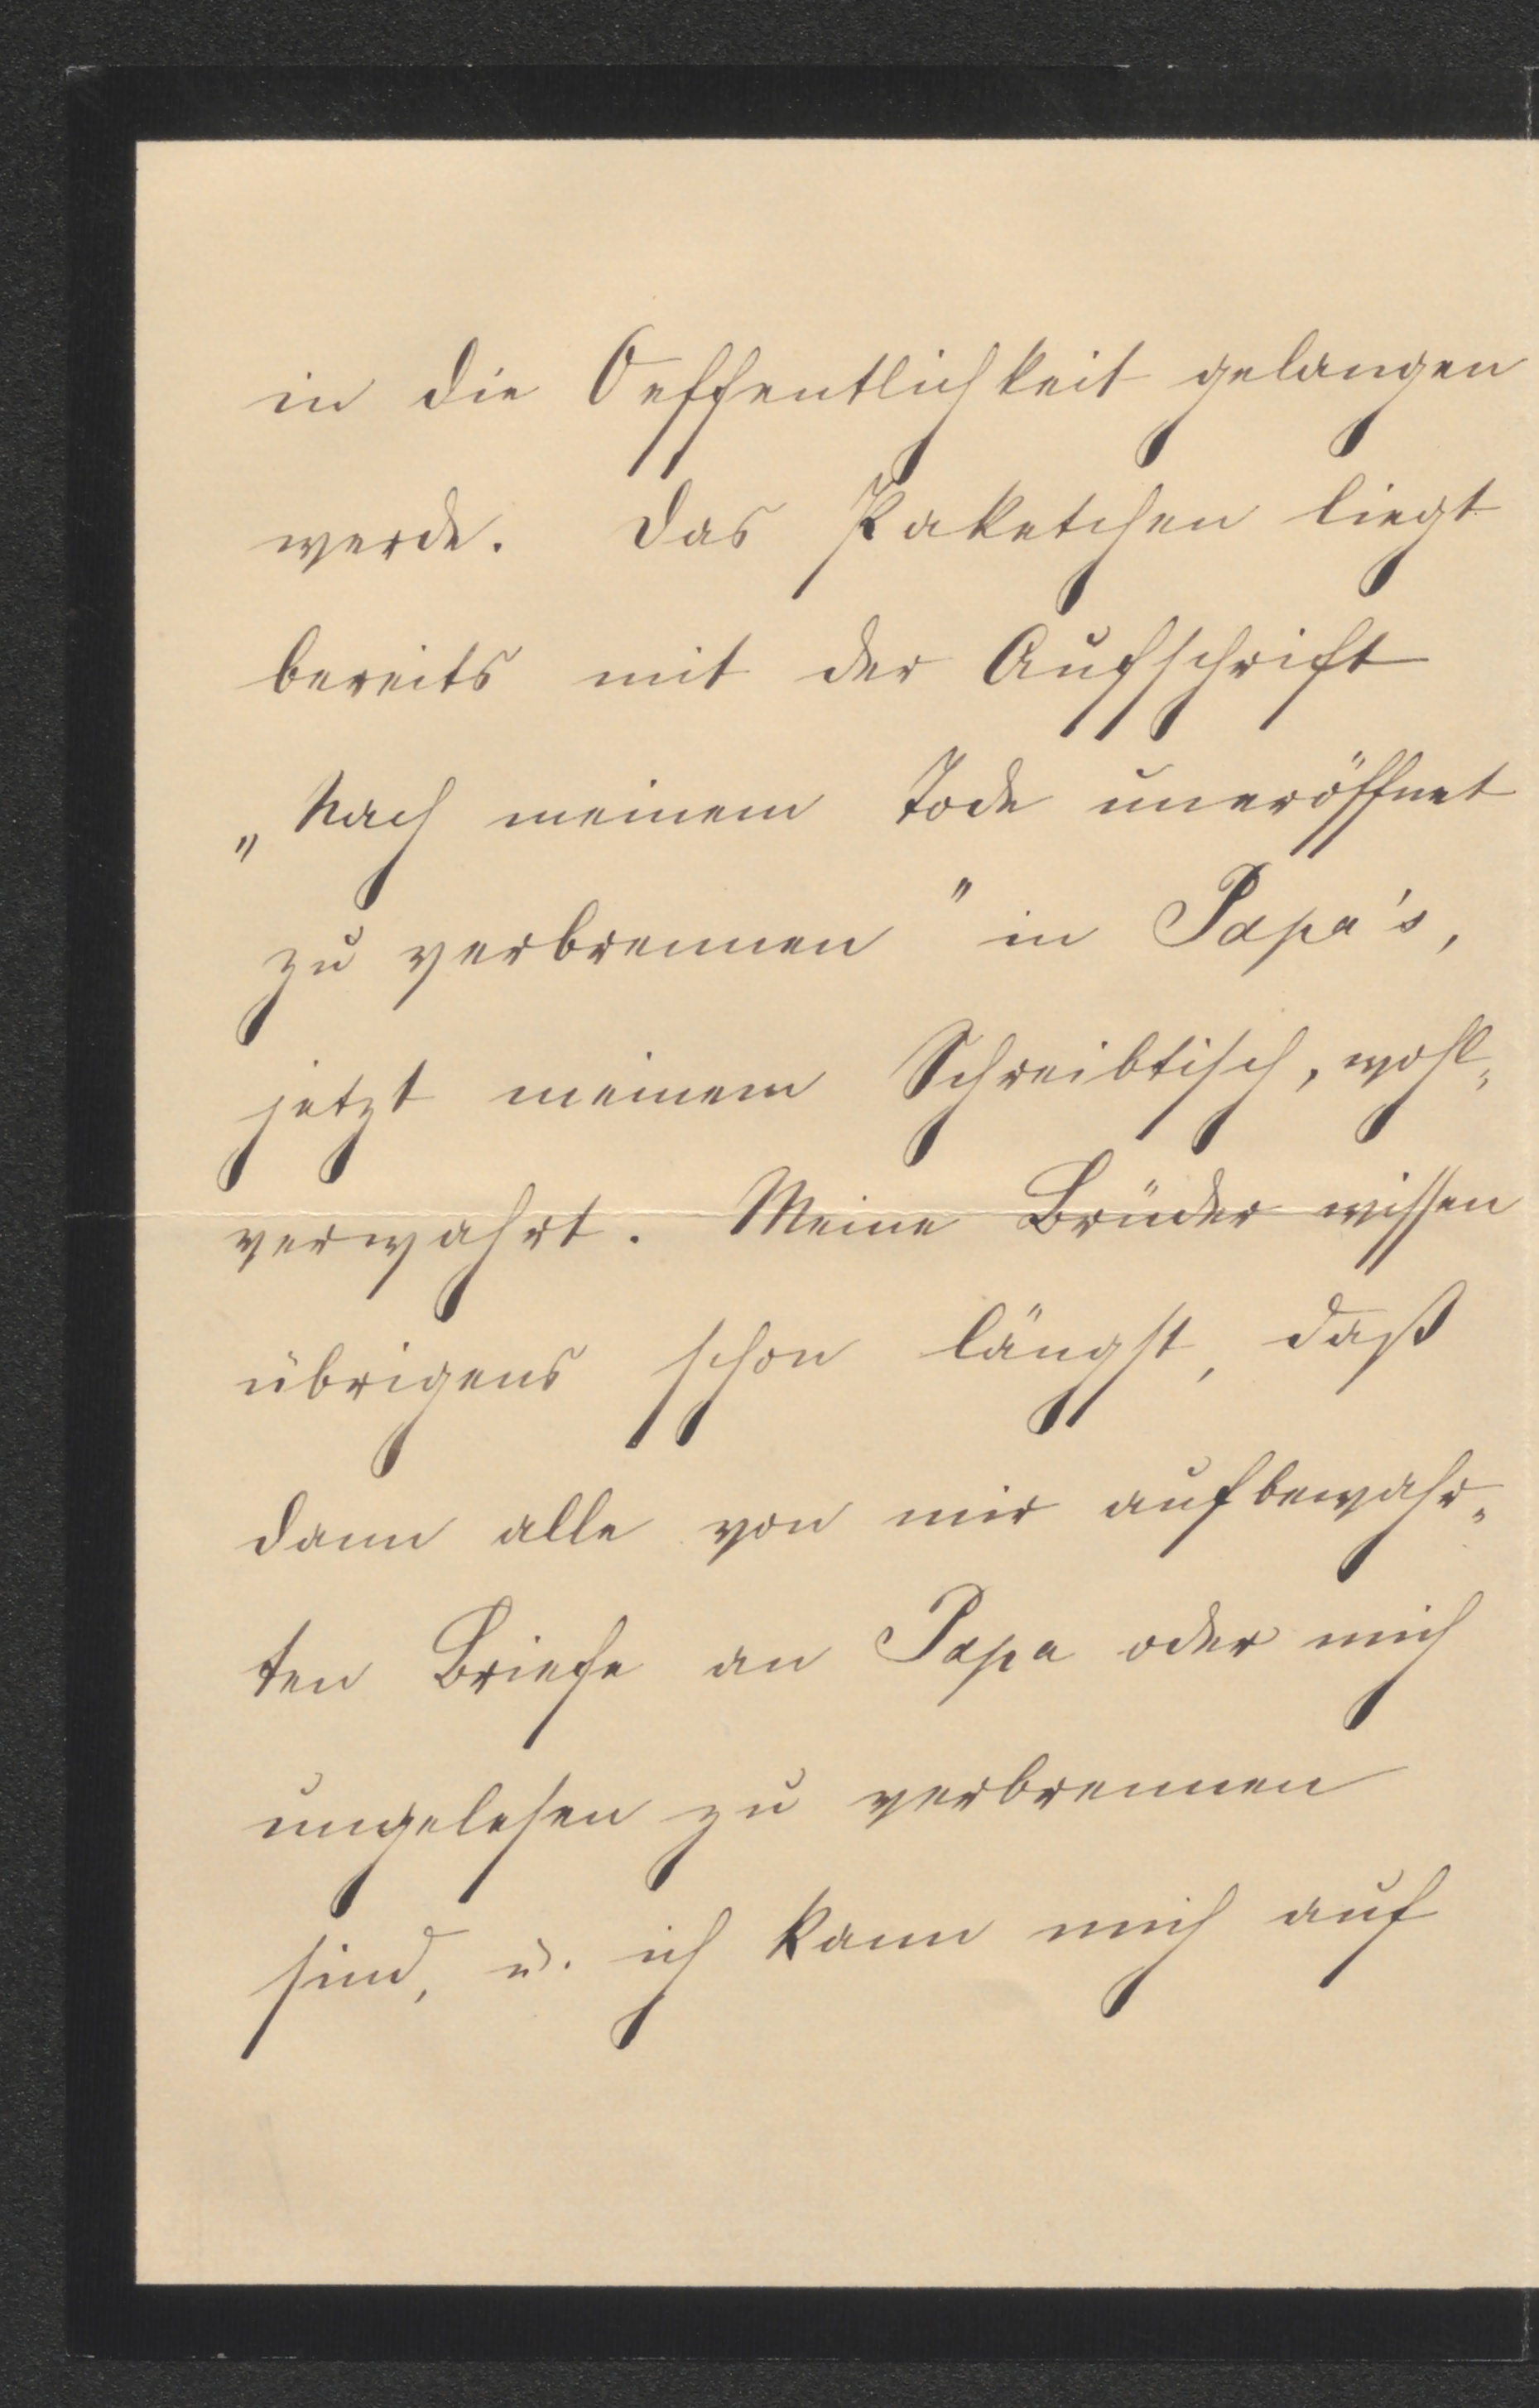 in die Oeffentlichkeit gelangen
werde. Das Paketchen liegt
bereits mit der Aufschrift
„Nach meinem Tode uneröffnet
zu verbrennen" in Papa's,
jetzt meinem Schreibtisch, wohl-
verwahrt. Meine Brüder wissen
übrigens schon längst, daß
dann alle von mir aufbewahr-
ten Briefe an Papa oder mich
ungelesen zu verbrennen
sind, u. ich kann mich auf